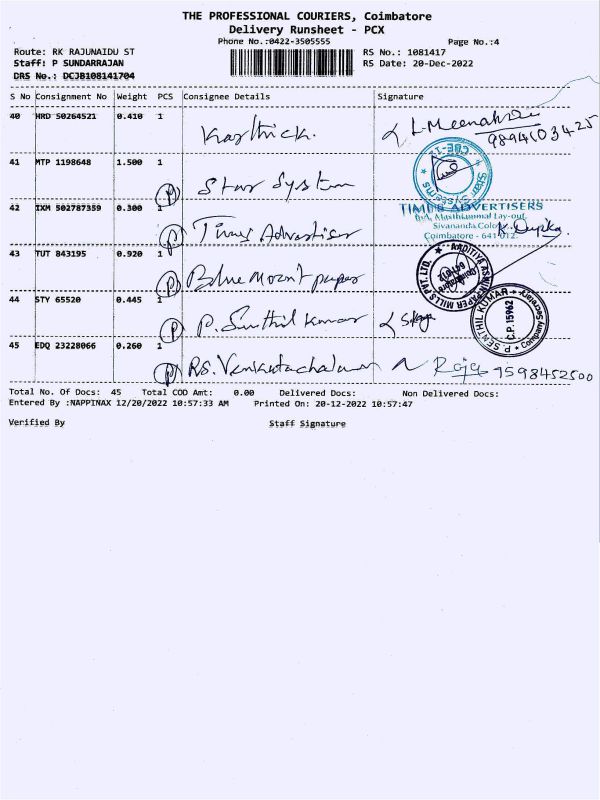 THE PROFESSIONAL COURIERS, Coimbatore
Delivery Runsheet - PCX
Phone No.:0422-3505555 Page No.:4
Route: RK RAJUNAIDU ST RS No.: 1081417
Staff: P SUNDARRAJAN RS Date: 20-Dec-2022
DRS No.: DCJB108141704
S No Consignment No Weight PCS Consignee Details Signature
40 HRD 50264521 0.410 1
Karthick. L.Meenakshi
9894103425
41 MTP 1198648 1.500 1
CBE-12
Star Systems
P Star System
42 IXM 502787359 0.300 1 TIMES ADVERTISERS
Lay-out,
Sivananda Colony
P Times Advertiser Coimbatore - 641 012.
43 TUT 843195 0.920 1
AADITIYA ASWIN PAPER MILLS PVT. LTD.
P Blue mount paper
44 STY 65520 0.445 1
P. SENTHIL KUMAR
C.P. 15962
Company Secretary
P P. Senthil Kumar
45 EDQ 23228066 0.260 1
P RS. Venkatachalam Raja 9598452500
Total No. Of Docs: 45 Total COD Amt: 0.00 Delivered Docs: Non Delivered Docs:
Entered By :NAPPINAX 12/20/2022 10:57:33 AM Printed On: 20-12-2022 10:57:47
Verified By Staff Signature